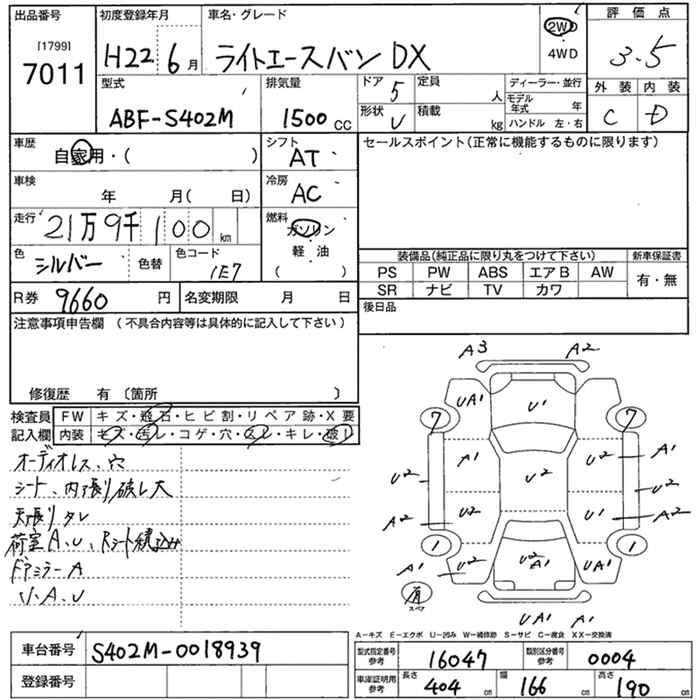 出品番号 初度登録年月 車名・グレード 評価点
[1799]
7011
H22 6月 ライトエースバン DX 2WD 4WD 3.5
型式 排気量 ドア 5 定員 人 ディーラー・並行 外装 内装
ABF-S402M 1500cc 形状 V 積載 kg モデル年式 年 C D
ハンドル 左・右
車歴 自家用・( ) シフト AT セールスポイント(正常に機能するものに限ります)
車検 年 月( 日) 冷房 AC
走行 21万9千100km 燃料 ガソリン
軽油
( )
色 シルバー 色替 色コード 1E7 装備品(純正品に限り丸をつけて下さい) 新車保証書
PS PW ABS エアB AW 有・無
SR ナビ TV カワ
R券 9660円 名変期限 月 日 後日品
注意事項申告欄 (不具合内容等は具体的に記入して下さい)
修復歴 有〔箇所 〕
検査員 FW キズ・飛石・ヒビ割・リペア跡・X要
記入欄 内装 キズ・汚レ・コゲ・穴・スレ・キレ・破レ
オーディオレス、穴
シート、内張り破レ大
天張りタレ
荷室A、U、Rシート積込み
ドアミラーA
A3 A2
UA1 U1
7 7
A1 U2 U2 A1
U2 U2
A2 U2 U1 A2
1 1
A1 U2 U2 A1 UA1
有 スペア
UA1 A1
A−キズ E−エクボ U−凹み W−補修跡 S−サビ C−腐食 XX−交換済
車台番号 S402M-0018939 型式指定番号 参考 16047 類別区分番号 参考 0004
登録番号 車庫証明用 参考 長さ 404cm 幅 166cm 高さ 190cm